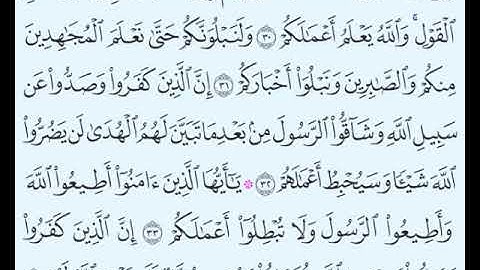 ٱلْقَوْلِ ۚ وَٱللَّهُ يَعْلَمُ أَعْمَٰلَكُمْ ٣٠ وَلَنَبْلُوَنَّكُمْ حَتَّىٰ نَعْلَمَ ٱلْمُجَٰهِدِينَ
مِنكُمْ وَٱلصَّٰبِرِينَ وَنَبْلُوَا۟ أَخْبَارَكُمْ ٣١ إِنَّ ٱلَّذِينَ كَفَرُوا۟ وَصَدُّوا۟ عَن
سَبِيلِ ٱللَّهِ وَشَآقُّوا۟ ٱلرَّسُولَ مِنۢ بَعْدِ مَا تَبَيَّنَ لَهُمُ ٱلْهُدَىٰ لَن يَضُرُّوا۟
ٱللَّهَ شَيْـًٔا وَسَيُحْبِطُ أَعْمَٰلَهُمْ ٣٢ يَٰٓأَيُّهَا ٱلَّذِينَ ءَامَنُوٓا۟ أَطِيعُوا۟ ٱللَّهَ
وَأَطِيعُوا۟ ٱلرَّسُولَ وَلَا تُبْطِلُوٓا۟ أَعْمَٰلَكُمْ ٣٣ إِنَّ ٱلَّذِينَ كَفَرُوا۟